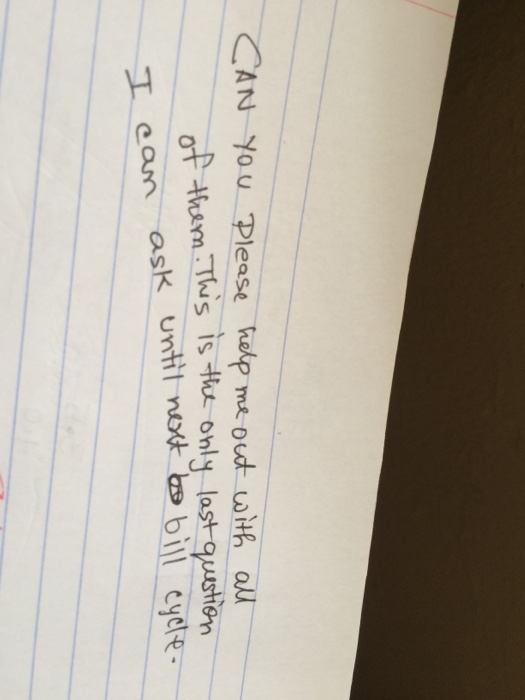 CAN YOU Please help me out with all
of them. This is the only last question
I can ask until next bill cycle.